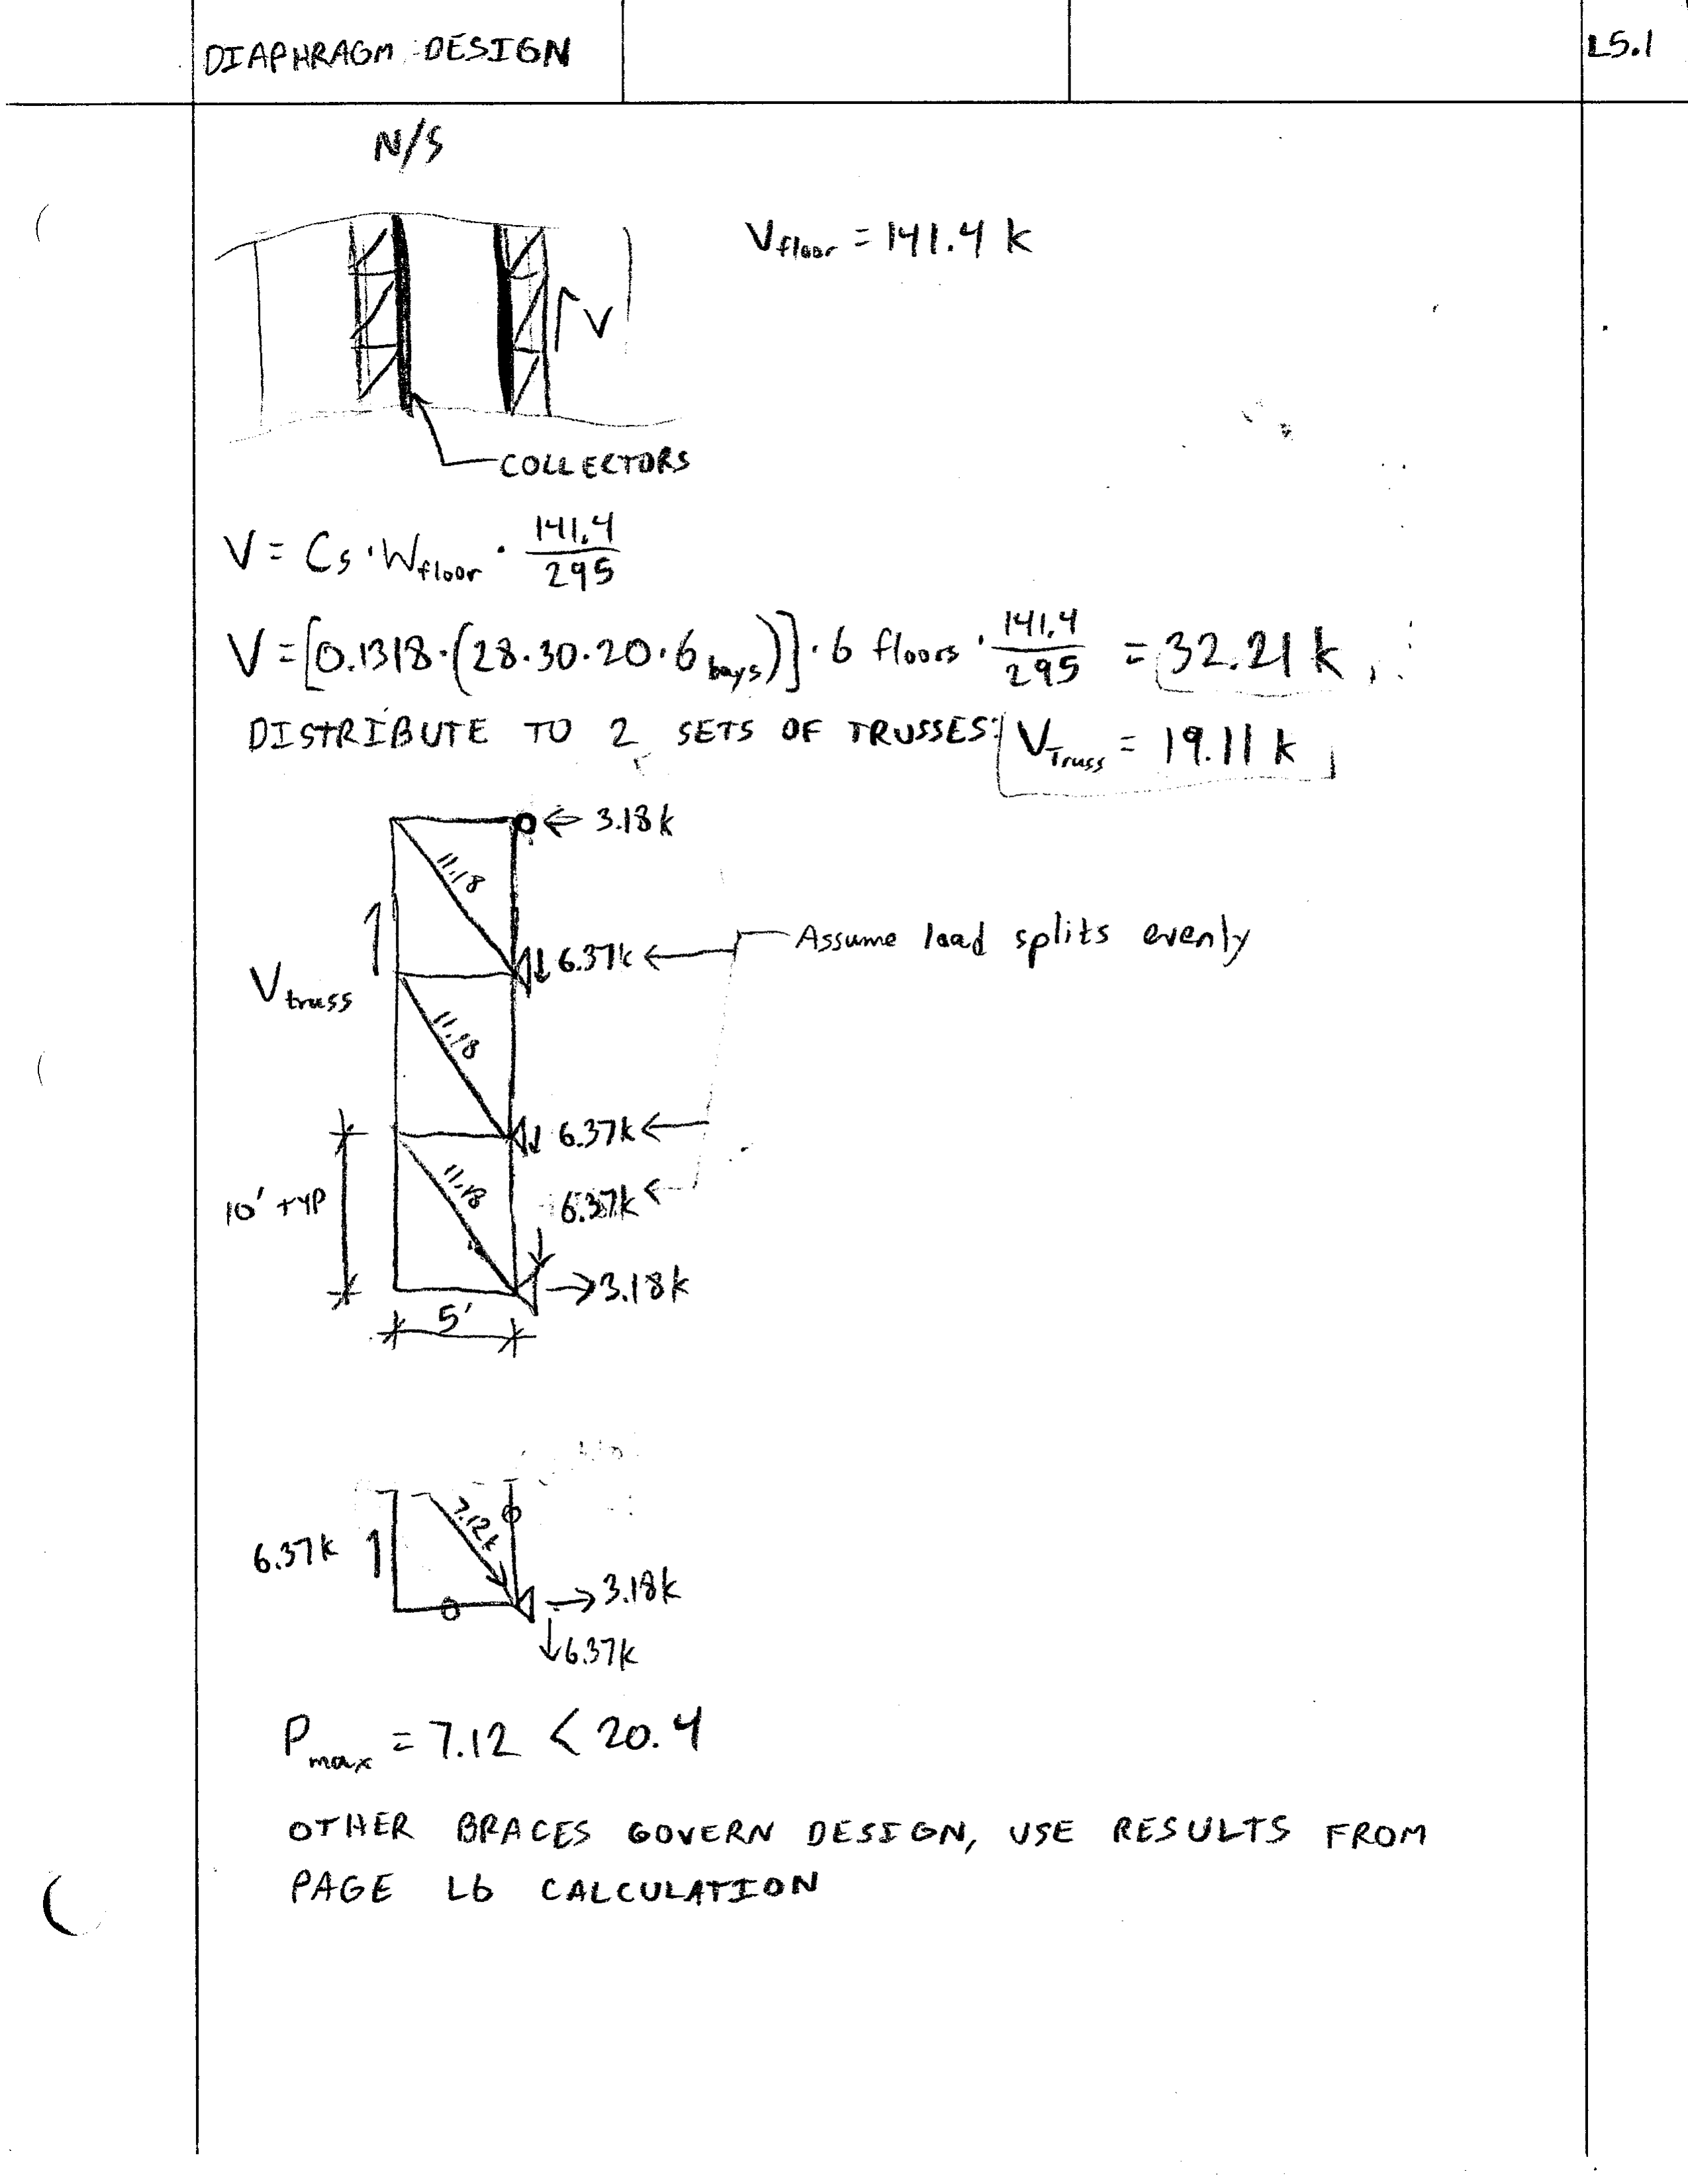 DIAPHRAGM DESIGN
L5.1
N/S
V floor = 141.4 k
V
COLLECTORS
V = Cs · W floor · 141.4 / 295
V = [0.1318 · (28 · 30 · 20 · 6 bays)] · 6 floors · 141.4 / 295 = 32.21 k
DISTRIBUTE TO 2 SETS OF TRUSSES: V Truss = 19.11 k
3.18k
11.18
6.37k
Assume load splits evenly
V truss
11.18
6.37k
10' TYP
11.18
6.37k
3.18k
5'
7.12k
0
6.37k
3.18k
0
6.37k
P max = 7.12 < 20.4
OTHER BRACES GOVERN DESIGN, USE RESULTS FROM
PAGE L6 CALCULATION